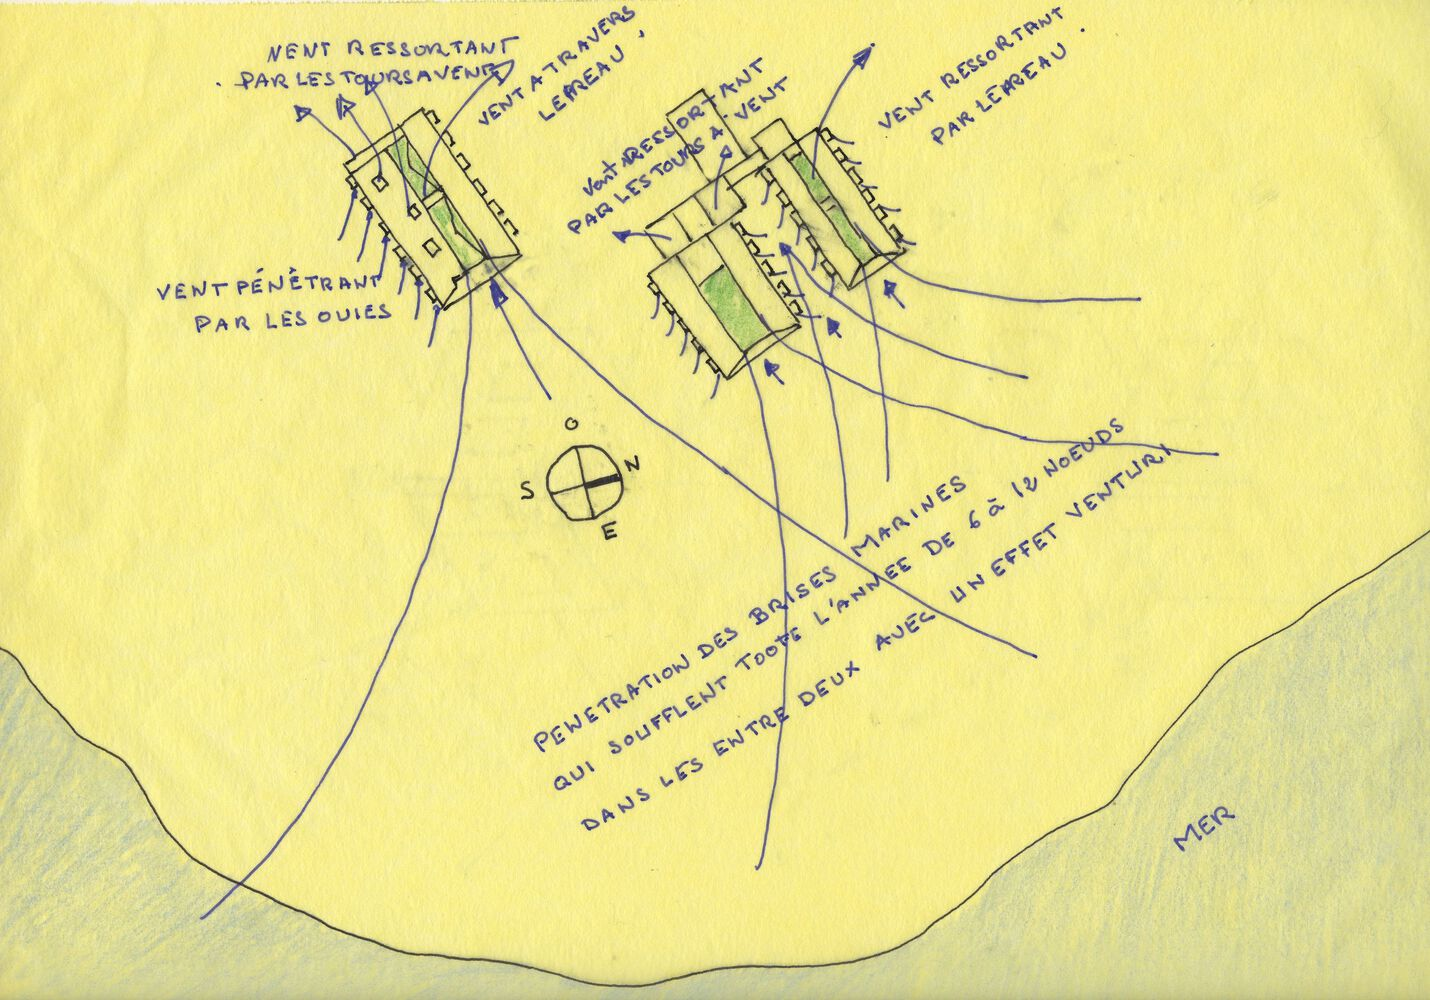 NENT RESSORTANT
PAR LES TOURS A VENT
VENT A TRAVERS
LE PREAU
VENT RESSORTANT
PAR LES TOURS A VENT
VENT RESSORTANT
PAR LE PREAU.
VENT PÉNÈTRANT
PAR LES OUIES
O
N
S
E
PENETRATION DES BRISES MARINES
QUI SOUFFLENT TOOTE L'ANNEE DE 6 à 12 NOEUDS
DANS LES ENTRE DEUX AVEC UN EFFET VENTURI
MER